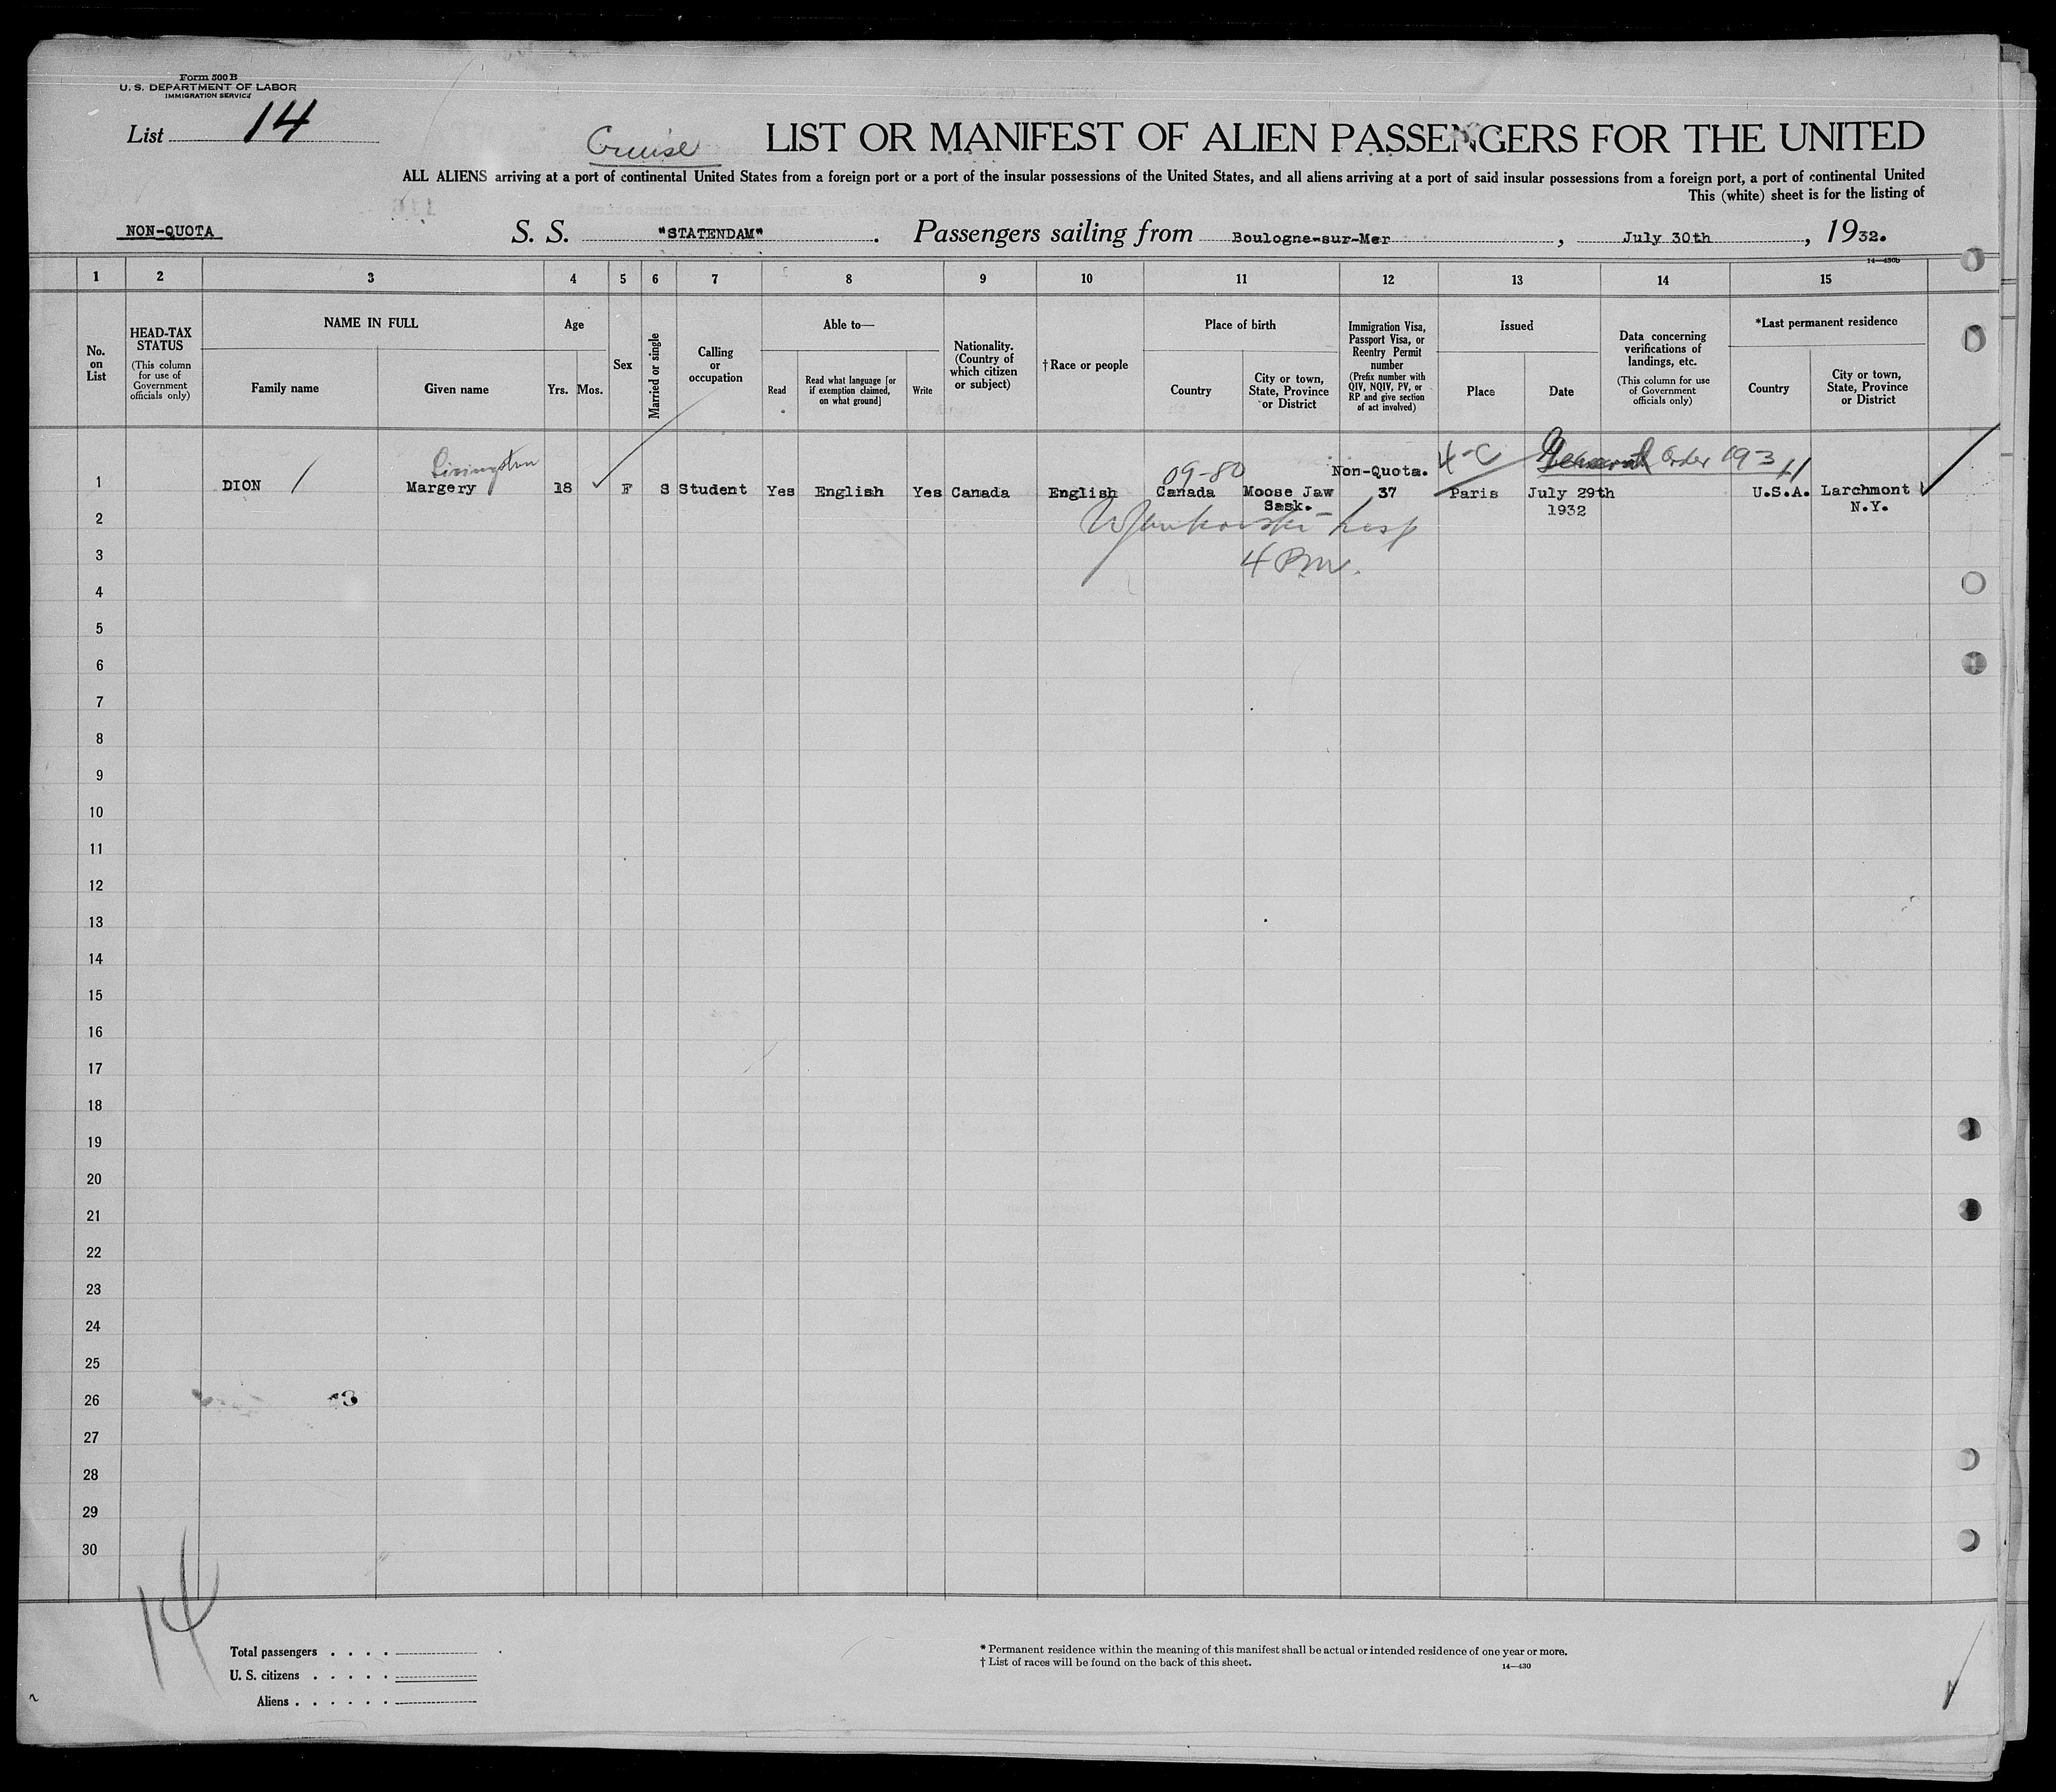 Form 500 B
U. S. DEPARTMENT OF LABOR
IMMIGRATION SERVICE
List 14
Cruise
LIST OR MANIFEST OF ALIEN PASSENGERS FOR THE UNITED
ALL ALIENS arriving at a port of continental United States from a foreign port or a port of the insular possessions of the United States, and all aliens arriving at a port of said insular possessions from a foreign port, a port of continental United
This (white) sheet is for the listing of
NON-QUOTA S. S. "STATENDAM". Passengers sailing from Boulogne-sur-Mer, July 30th, 1932.
14—430b
1 2 3 4 5 6 7 8 9 10 11 12 13 14 15
No. on List
HEAD-TAX STATUS
(This column for use of Government officials only)
NAME IN FULL
Family name Given name
Age
Yrs. Mos.
Sex
Married or single
Calling or occupation
Able to—
Read
Read what language [or if exemption claimed, on what ground]
Write
Nationality. (Country of which citizen or subject)
†Race or people
Place of birth
Country
City or town, State, Province or District
Immigration Visa, Passport Visa, or Reentry Permit number
(Prefix number with QIV, NQIV, PV, or RP and give section of act involved)
Issued
Place Date
Data concerning verifications of landings, etc.
(This column for use of Government officials only)
*Last permanent residence
Country
City or town, State, Province or District
Livingston 09-80 Non-Quota. 4-C General Order 193
1 DION Margery 18 F S Student Yes English Yes Canada English Canada Moose Jaw 37 Paris July 29th U.S.A. Larchmont
Sask. 1932 N.Y.
2
3
4 PM.
4
5
6
7
8
9
10
11
12
13
14
15
16
17
18
19
20
21
22
23
24
25
26
27
28
29
30
14
Total passengers
U. S. citizens
Aliens
* Permanent residence within the meaning of this manifest shall be actual or intended residence of one year or more.
† List of races will be found on the back of this sheet.
14—430